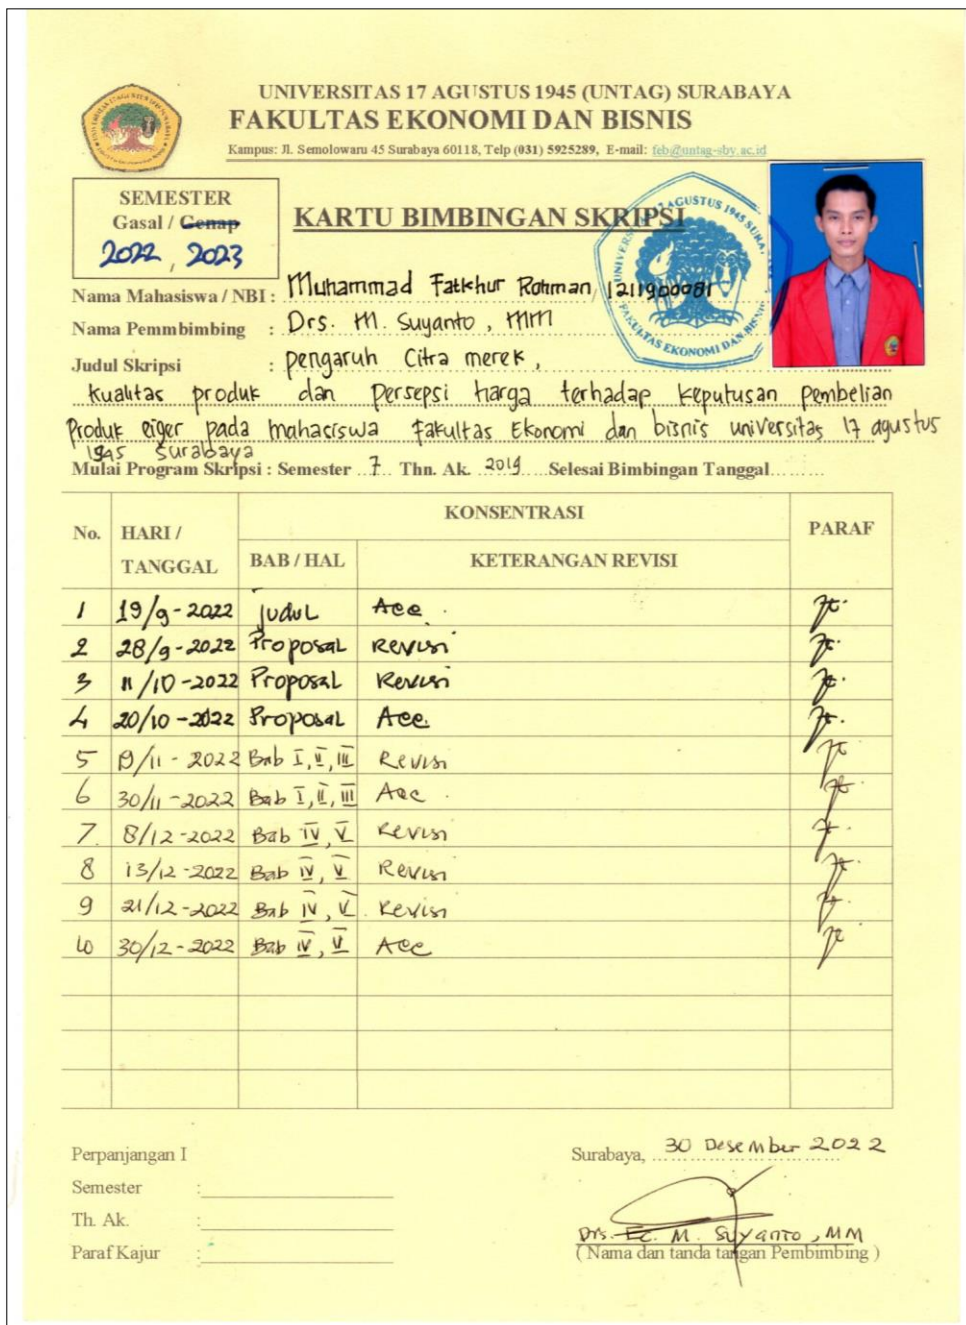 UNIVERSITAS 17 AGUSTUS 1945 (UNTAG) SURABAYA
FAKULTAS EKONOMI DAN BISNIS
Kampus: Jl. Semolowaru 45 Surabaya 60118, Telp (031) 5925289, E-mail: feb@untag-sby.ac.id
SEMESTER
Gasal / Genap
2022, 2023
KARTU BIMBINGAN SKRIPSI
Nama Mahasiswa / NBI : Muhammad Fatkhur Rohman / 1211900081
Nama Pemmbimbing : Drs. M. Suyanto, MM
Judul Skripsi : pengaruh Citra merek,
kualitas produk dan Persepsi harga terhadap keputusan pembelian
Produk eiger pada mahasiswa fakultas Ekonomi dan bisnis universitas 17 agustus
1945 Surabaya
Mulai Program Skripsi : Semester 7 Thn. Ak. 2019 Selesai Bimbingan Tanggal
No. HARI / TANGGAL KONSENTRASI PARAF
BAB / HAL KETERANGAN REVISI
1 19/9-2022 Judul Acc.
2 28/9-2022 Proposal Revisi
3 11/10-2022 Proposal Revisi
4 20/10-2022 Proposal Acc.
5 /11-2022 Bab I, II, III Revisi
6 30/11-2022 Bab I, II, III Acc.
7. 8/12-2022 Bab IV, V Revisi
8 13/12-2022 Bab IV, V Revisi
9 21/12-2022 Bab IV, V Revisi
10 30/12-2022 Bab IV, V Acc
Perpanjangan I
Surabaya, 30 Desember 2022
Semester :
Th. Ak. :
Paraf Kajur :
Drs. Ec. M. Suyanto, MM
( Nama dan tanda tangan Pembimbing )